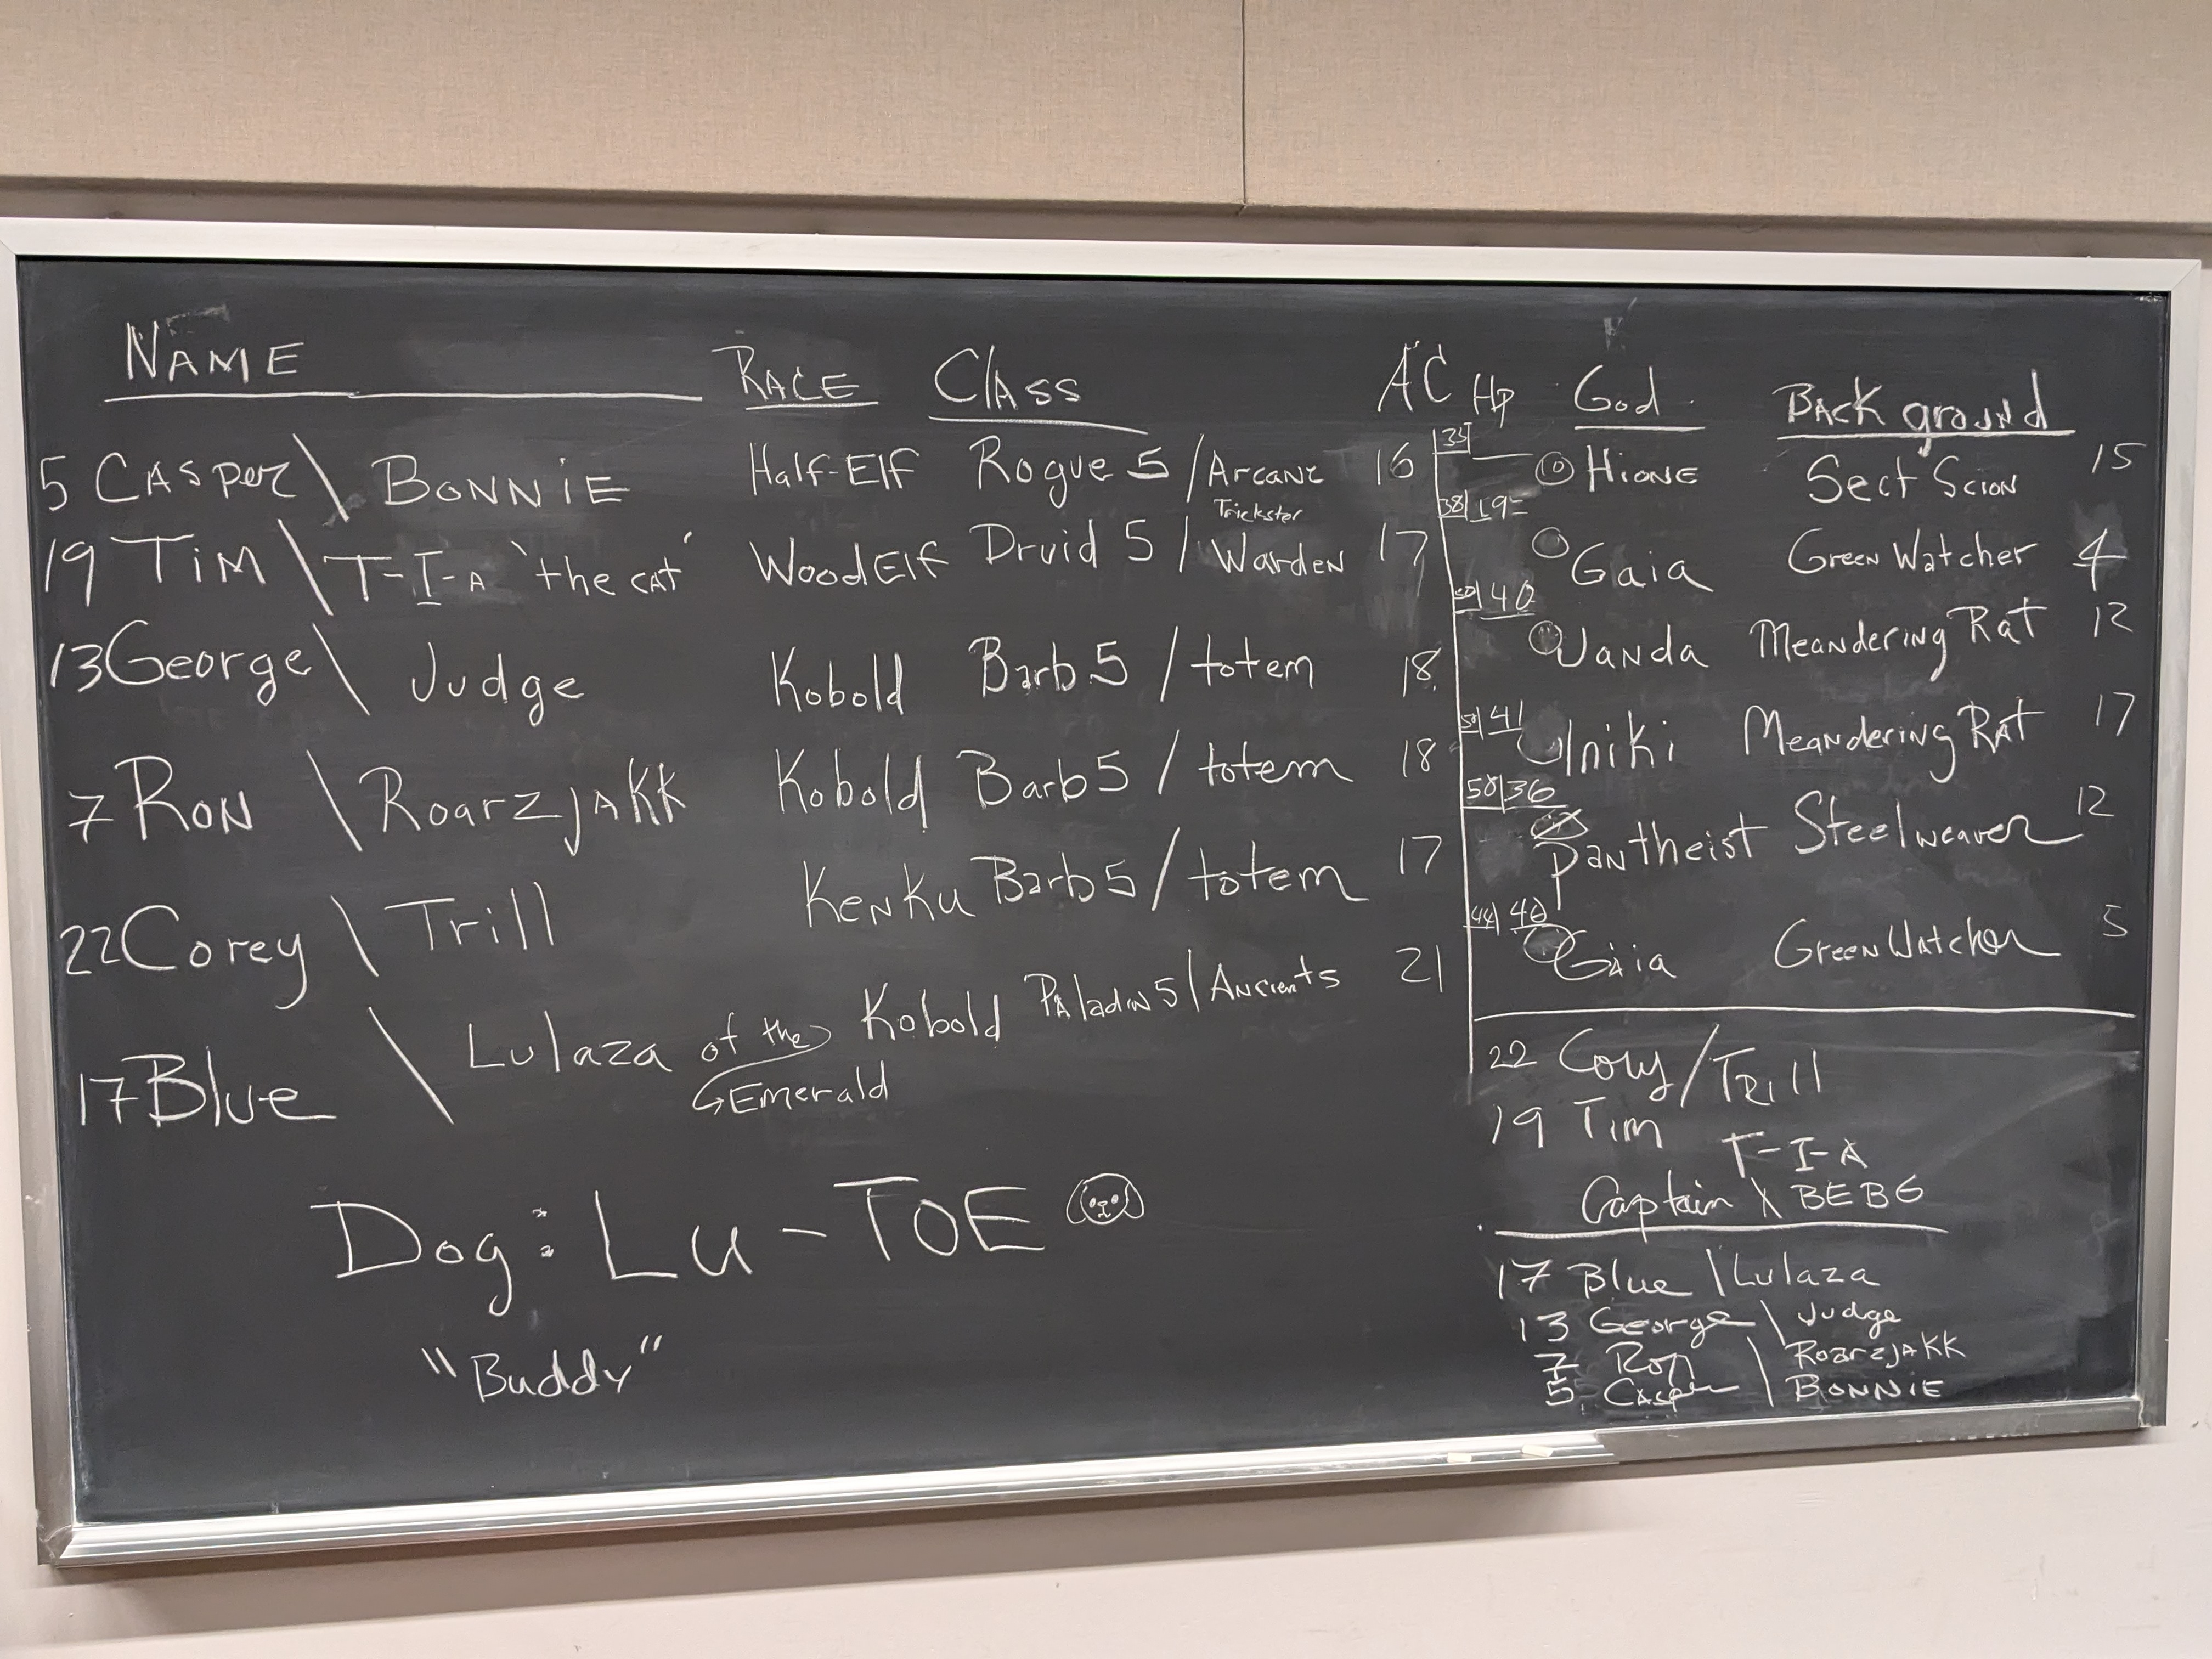 NAME RACE Class AC Hp God Background
5 Casper \ BONNIE Half-Elf Rogue 5 / Arcane Trickster 16 35 Hione Sect Scion 15
19 Tim \ T-I-A 'the cat' Wood Elf Druid 5 / Warden 17 38 19 Gaia Green Watcher 4
13 George \ Judge Kobold Barb 5 / totem 18 50 40 Wanda Meandering Rat 12
7 Ron \ Roarzjakk Kobold Barb 5 / totem 18 50 41 Iniki Meandering Rat 17
22 Corey \ Trill Kenku Barb 5 / totem 17 58 36 Pantheist Steelweaver 12
17 Blue \ Lulaza of the Emerald Kobold Paladin 5 / Ancients 21 44 40 Gaia Green Watcher 5
Dog: Lu-TOE
"Buddy"
22 Cory / Trill
19 Tim T-I-A
Captain \ BEBG
17 Blue \ Lulaza
13 George \ Judge
7 Ron \ Roarzjakk
5 Casper \ BONNIE